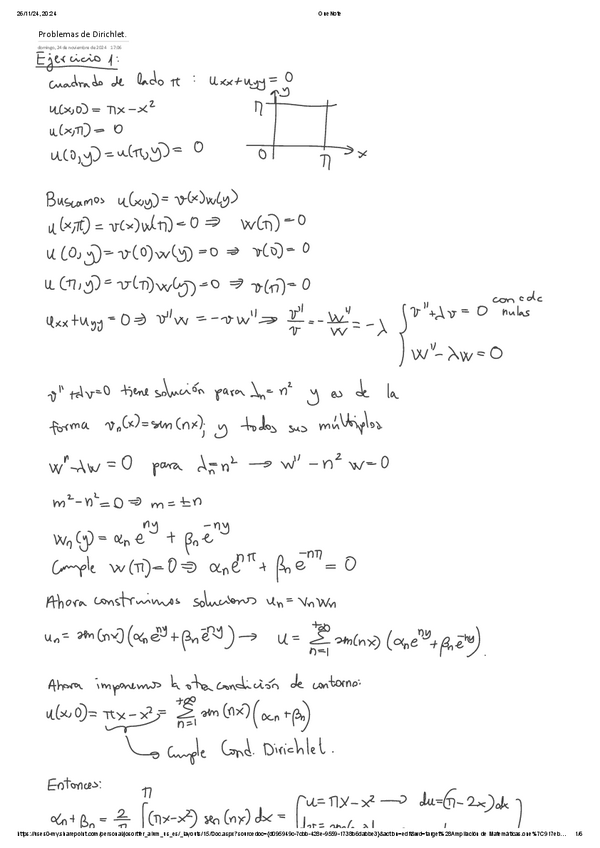 26/11/24, 20:24
OneNote
Problemas de Dirichlet.
domingo, 24 de noviembre de 2024 17:06
Ejercicio 1:
cuadrado de lado π : uxx+uyy = 0
u(x,0) = πx-x²
u(x,π) = 0
u(0,y)=u(π,y)= 0
y
π
0
π
x
Buscamos u(x,y)=v(x)w(y)
u(x,π)=v(x)w(π)=0 ⇒ w(π)=0
u(0,y)=v(0)w(y)=0 ⇒ v(0)=0
u(π,y)=v(π)w(y)=0 ⇒ v(π)=0
uxx+uyy=0 ⇒ v''w = -vw'' ⇒ v''/v = -w''/w = -λ { v''+λv = 0 con cdc nulas
w''-λw = 0
v''+λv=0 tiene solución para λn=n² y es de la
forma vn(x)=sen(nx); y todos sus múltiplos
w''-λw = 0 para λn=n² → w''-n²w=0
m²-n²=0 ⇒ m=±n
wn(y)= αn e^ny + βn e^-ny
Cumple w(π)=0 ⇒ αn e^nπ + βn e^-nπ = 0
Ahora construimos soluciones un = vnwn
un= sen(nx)(αn e^ny + βn e^-ny) → u = Σ n=1 +∞ sen(nx)(αn e^ny + βn e^-ny).
Ahora imponemos la otra condición de contorno:
u(x,0)= πx-x² = Σ n=1 +∞ sen(nx)(αn+βn)
Cumple Cond. Dirichlet.
Entonces:
αn+βn = 2/π ∫ π (πx-x²) sen(nx) dx = { u=πx-x² → du=(π-2x)dx